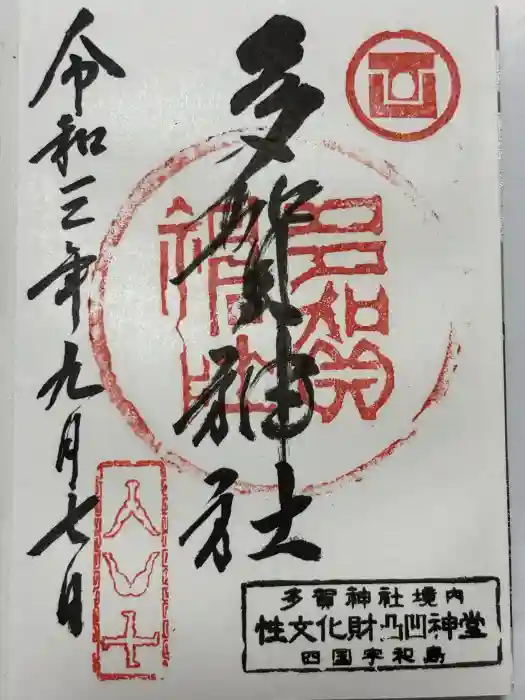 多賀神社
令和三年九月七日
多賀神社
多賀神社境内
性文化財凸凹神堂
四国宇和島